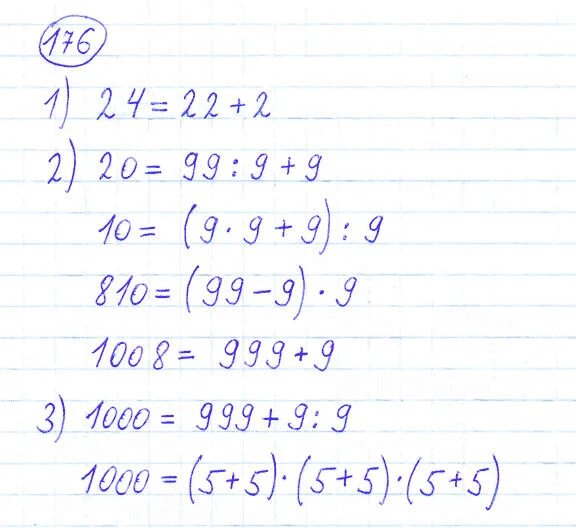 176
1) 24 = 22 + 2
2) 20 = 99 : 9 + 9
10 = (9 · 9 + 9) : 9
810 = (99 - 9) · 9
1008 = 999 + 9
3) 1000 = 999 + 9 : 9
1000 = (5+5) · (5+5) · (5+5)